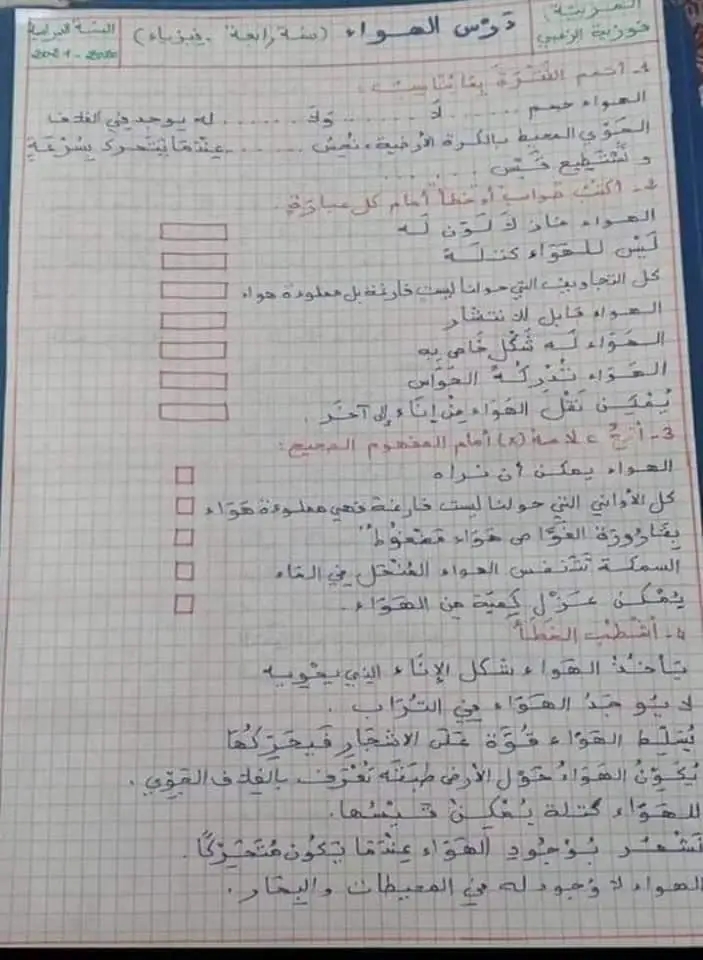 المربية: فوزية الزغبي
درس الهواء (سنة رابعة - فيزياء)
السنة الدراسية
2020 - 2021
1- أتمم الفقرة بما يناسب:
الهواء جسم ........ لا ........ ولا ........ له يوجد في الغلاف
الجوّي المحيط بالكرة الأرضية، نحسّ ........ عندما يتحرك بسرعة
و نستطيع قيس ........
2- أكتب صواب أو خطأ أمام كل عبارة.
الهواء غاز لا لون له
ليس للهواء كتلة
كل التجاويف التي حولنا ليست فارغة بل مملوءة هواء
الهواء قابل للانتشار
الهواء له شكل خاص به
الهواء تدركه الحواس
يمكن نقل الهواء من إناء إلى آخر.
3- أضع علامة (x) أمام المفهوم الصحيح:
الهواء يمكن أن نراه
كل الأواني التي حولنا ليست فارغة فهي مملوءة هواء
بقارورة الغوّاص هواء مضغوط
السمكة تتنفس الهواء المنحل في الماء
يمكن عزل كمية من الهواء.
4- أشطب الخطأ
يأخذ الهواء شكل الإناء الذي يحويه
لا يوجد الهواء في التراب.
يسلط الهواء قوّة على الأشجار فيحركها
يكوّن الهواء حول الأرض طبقة تعرف بالغلاف الجوّي.
للهواء كتلة يمكن قيسها.
نشعر بوجود الهواء عندما يكون متحركا.
الهواء لا وجود له في المحيطات والبحار.